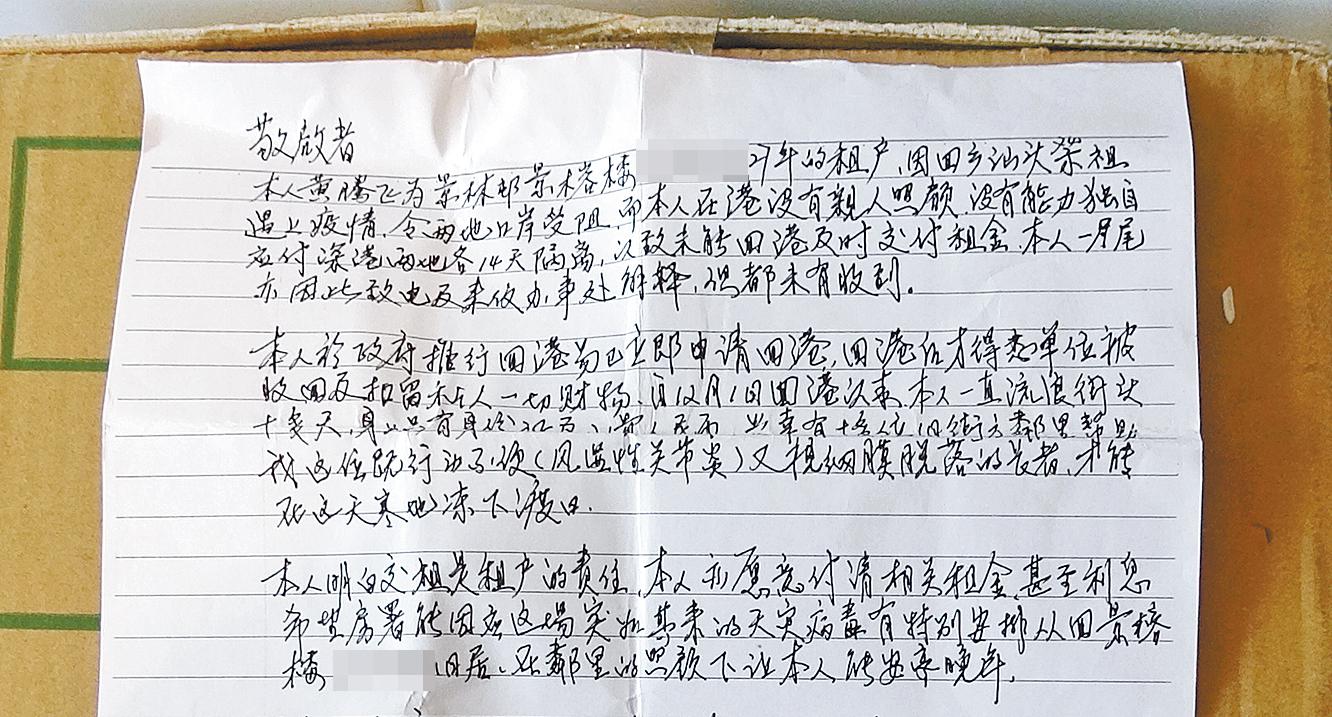 敬啟者
本人黄腾飞为景林邨景榕楼 27年的租户,因回乡汕头祭祖
遇上疫情,令两地口岸受阻,而本人在港没有親人照顾,没有能力独自
应付深港两地各14天隔离,以致未能回港及时交付租金,本人一月尾
亦因此致电及来信办事处解释,但都未有收到。
本人於政府推行回港易已立即申请回港,回港后才得知单位被
收回及扣留本人一切财物,自12月1日回港以来,本人一直流浪街头
十幾天,身上只有身份证 幸有 旧街方鄰里帮助
我这位 行动不便(风湿性关节炎)又視網膜脱落的长者,才能
在这天寒地凍下渡日.
本人明白交租是租户的责任,本人亦愿意付清相关租金,甚至利息
希望房署能因应这場突如其来的天灾病毒有特别安排从回景榕
楼 旧居,在鄰里的照顾下让本人能安享晚年.